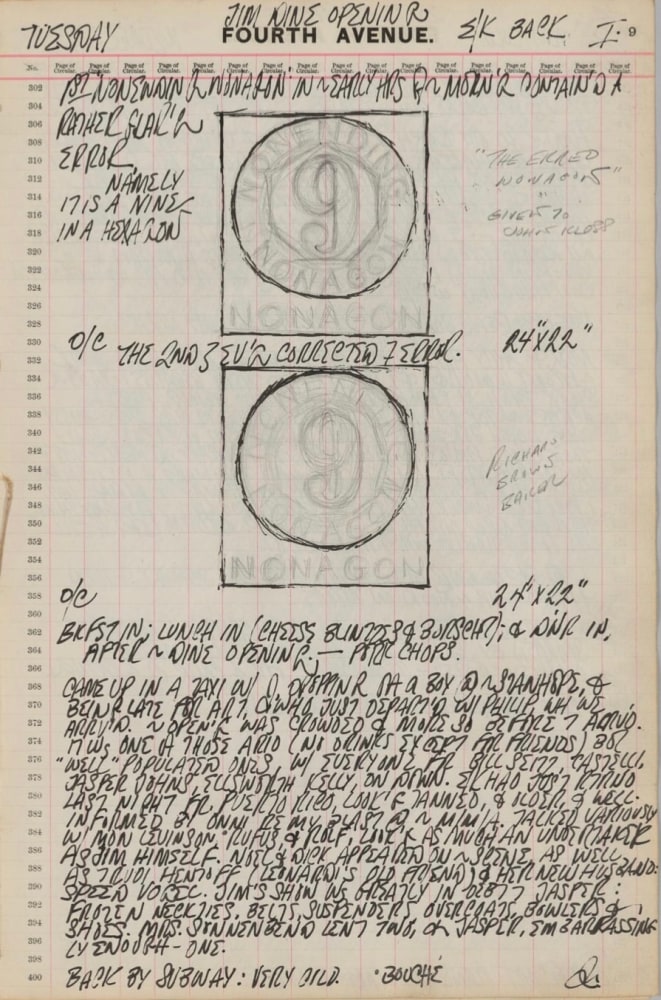 TUESDAY
JIM DINE OPENING
FOURTH AVENUE.
E/K BACK
I · 9
No. Page of Circular. Page of Circular. Page of Circular. Page of Circular. Page of Circular. Page of Circular. Page of Circular. Page of Circular. Page of Circular. Page of Circular. Page of Circular. Page of Circular. Page of Circular. Page of Circular. Page of Circular. Page of Circular. Page of Circular.
302
1ST NONENDIN'G NONAGON IN ~ EARLY HRS @ ~ MORN'G CONTAIN'D A
304
RATHER GLAR'G
306
308
ERROR
310
NAMELY
312
IT IS A NINE
314
IN A HEXAGON
316
318
320
322
324
326
328
NONENDING
9
NONAGON
NONAGON
"THE ERRED
NONAGON"
GIVEN TO
330
O/C THE 2ND 3 EV'G CORRECTED 7 ERROR. 24"X22"
332
334
336
338
340
342
344
346
348
350
352
354
356
NONENDING
9
NONAGON
NONAGON
RICHARD
BROWN
BAKER
358
O/C 24"X22"
360
362
BKFST IN; LUNCH IN (CHEESE BLINTZES & BORSCHT); & DINR IN,
364
AFTER ~ DINE OPENING, — PORK CHOPS.
366
368
CAME UP IN A TAXI W/ D, DROPPING OFF A BOX @ ~ STANHOPE, &
370
BEING LATE FOR ART. D, WHO JUST DEPART'D W/ PHILIP, WH WE
372
ARRV'D. ~ OPEN'G WAS CROWDED & MORE SO BEFORE 7 ARRVD.
374
IT WS ONE OF THOSE ARID (NO DRINKS EXCEPT FR FRIENDS) BUT
376
"WELL" POPULATED ONES, W/ EVERYONE FR BILL SEITZ, CASTELLI,
378
JASPER JOHNS, ELLSWORTH KELLY, ON DOWN. E/K HAD JUST RETRND
380
LAST NIGHT FR. PUERTO RICO, LOOK'G TANNED, & OLDER, & WELL.
382
INFORMED BY RE MY BLAST @ ~ M/M/A. TALKED VARIOUSLY
384
W/ MON LEVINSON, RUFUS, & ROLF, LOOK'G AS MUCH AN UNDERTAKER
386
AS JIM HIMSELF. NOEL & DICK APPEARED ON ~ SCENE, AS WELL
388
AS TRUDI, HENTOFF (LEONARD'S OLD FRIEND) & HER NEW HUSBAND:
390
SPEED VOGEL. JIM'S SHOW WS GREATLY IN DEBT 7 JASPER:
392
FROZEN NECKTIES, BELTS, SUSPENDERS, OVERCOATS, BOWLERS &
394
SHOES. MRS. SONNENBEND LENT TWO, & JASPER, EMBARRASSING
396
LY ENOUGH - ONE.
398
400
BACK BY SUBWAY: VERY COLD. · BOUCHÉ